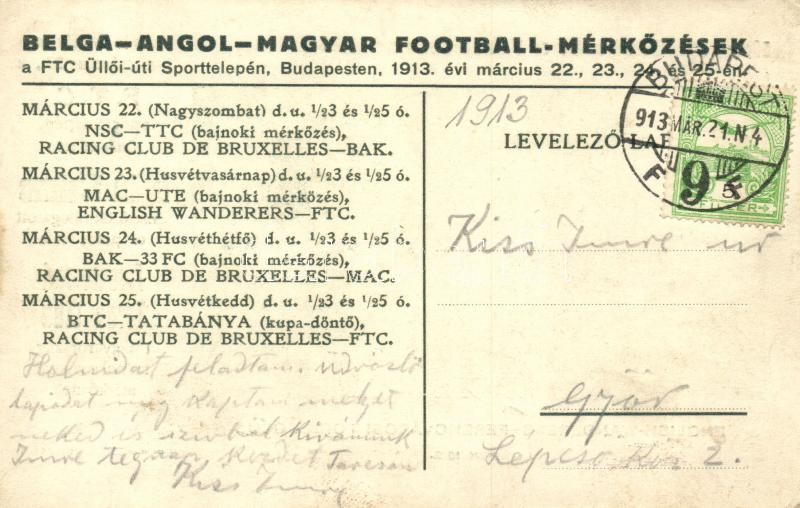 BELGA—ANGOL—MAGYAR FOOTBALL-MÉRKŐZÉSEK
a FTC Üllői-úti Sporttelepén, Budapesten, 1913. évi március 22., 23., 24. és 25-én.
MÁRCIUS 22. (Nagyszombat) d. u. 1/23 és 1/25 ó.
NSC—TTC (bajnoki mérkőzés),
RACING CLUB DE BRUXELLES—BAK.
MÁRCIUS 23. (Husvétvasárnap) d. u. 1/23 és 1/25 ó.
MAC—UTE (bajnoki mérkőzés),
ENGLISH WANDERERS—FTC.
MÁRCIUS 24. (Husvéthétfő) d. u. 1/23 és 1/25 ó.
BAK—33 FC (bajnoki mérkőzés),
RACING CLUB DE BRUXELLES—MAC.
MÁRCIUS 25. (Husvétkedd) d. u. 1/23 és 1/25 ó.
BTC—TATABÁNYA (kupa-döntő),
RACING CLUB DE BRUXELLES—FTC.
feladtam. üdvözlő
lapodat kaptam melyet
neked is szivből kivánunk
Imre
Kiss Imre
1913
LEVELEZŐ-LAP
BUDAPEST
913 MÁR. 21. N 4
9
5
FILLER
Kiss Imre úr
Győr
2.